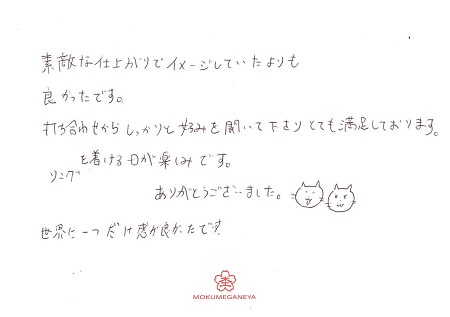 素敵な仕上がりでイメージしていたよりも
良かったです。
打ち合わせから しっかりと 好みを聞いて下さり とても満足しております。
リング を着ける日が楽しみです。
ありがとうございました。
世界に一つだけ感が良かったです
杢
MOKUMEGANEYA